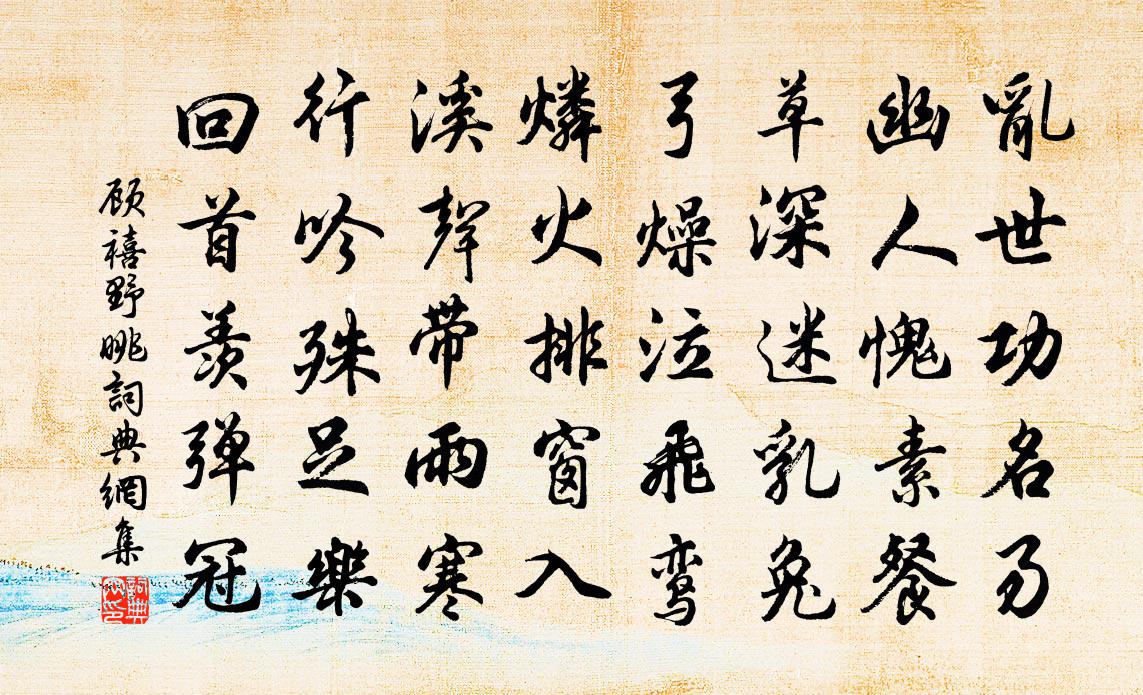 亂世功名易
幽人愧素餐
草深迷乳兔
弓燥泣飛鸾
燐火排窗入
溪聲带雨寒
行吟殊足樂
回首羡弹冠
顾禧野眺詞典網集